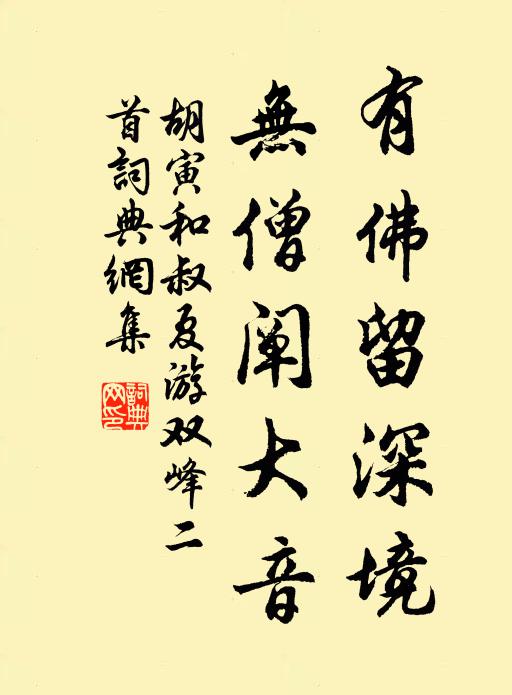 有佛留深境
無僧阐大音
胡寅和叔夏游双峰二
首詞典網集
詞典網印